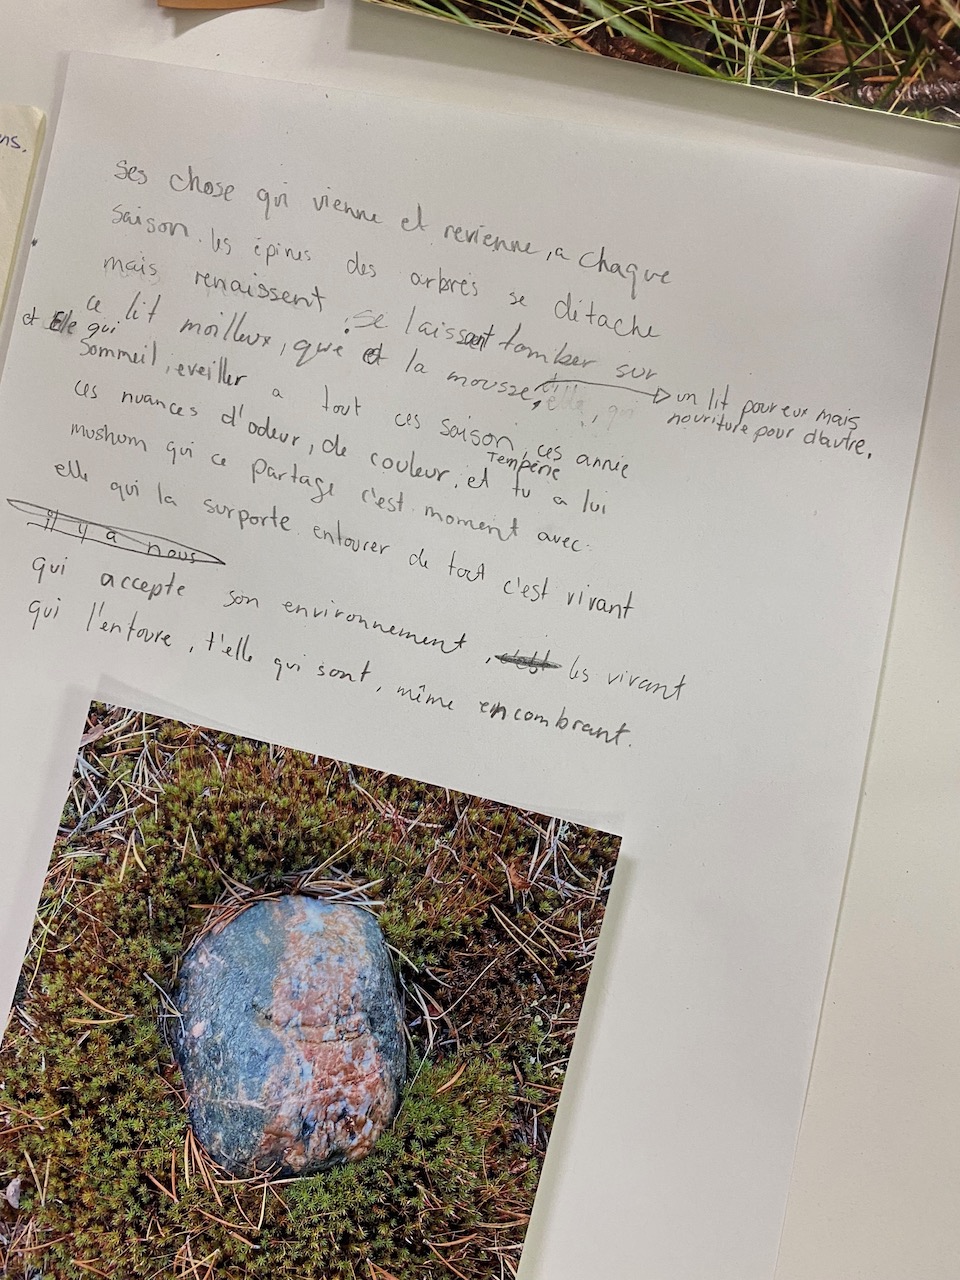 ns.
ses chose qui vienne et revienne, a chaque
saison. les épines des arbres se détache
mais renaissent. Se laissant tomber sur
ce lit moilleux, que et la mousse, elle, qui
un lit pour eux mais
nouriture pour d'autre.
et Elle qui
sommeil, eveiller a tout ces saison, ces annie
Tempérie
ces nuances d'odeur, de couleur, et tu a lui
mushum qui ce partage c'est moment avec
elle qui la surporte entourer de tout c'est vivant
il y a nous
qui accepte son environnement, c'est les vivant
qui l'entoure, t'elle qui sont, même encombrant.